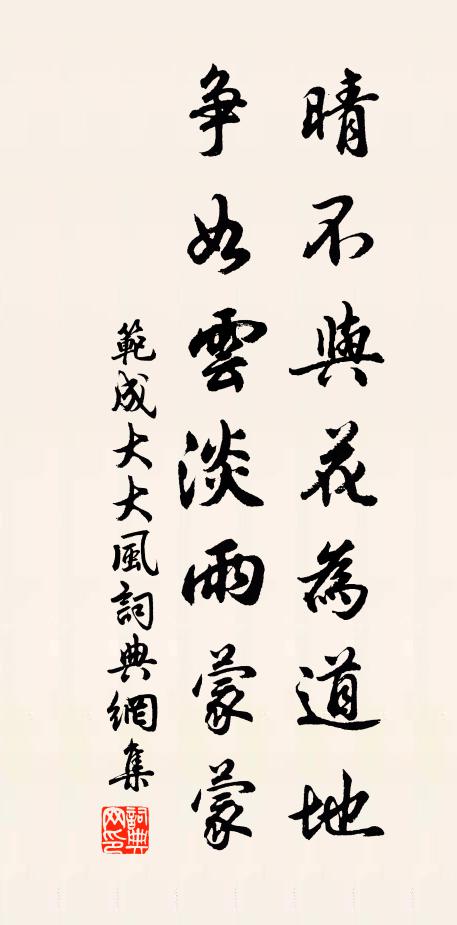 晴不與花為道地
爭如雲淡雨蒙蒙
範成大大風詞典網集
詞典網印